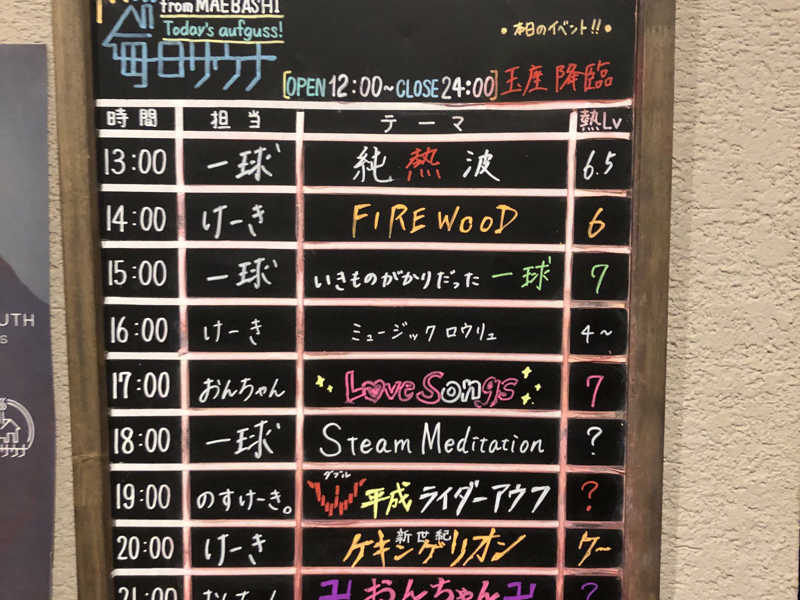 from MAEBASHI
Today's aufguss!
毎日サウナ
•本日のイベント!!•
[OPEN 12:00~CLOSE 24:00] 玉座降臨
時間 担当 テーマ 熱Lv
13:00 一球 純熱波 6.5
14:00 けーき FIREWOOD 6
15:00 一球 いきものがかりだった一球 7
16:00 けーき ミュージックロウリュ 4~
17:00 おんちゃん Love Songs 7
18:00 一球 Steam Meditation ?
ダブル
19:00 のすけーき。 W平成ライダーアウフ ?
新世紀
20:00 けーき ケキンゲリオン 7~
21:00 おんちゃん 卍おんちゃん卍 ?
UTH
S